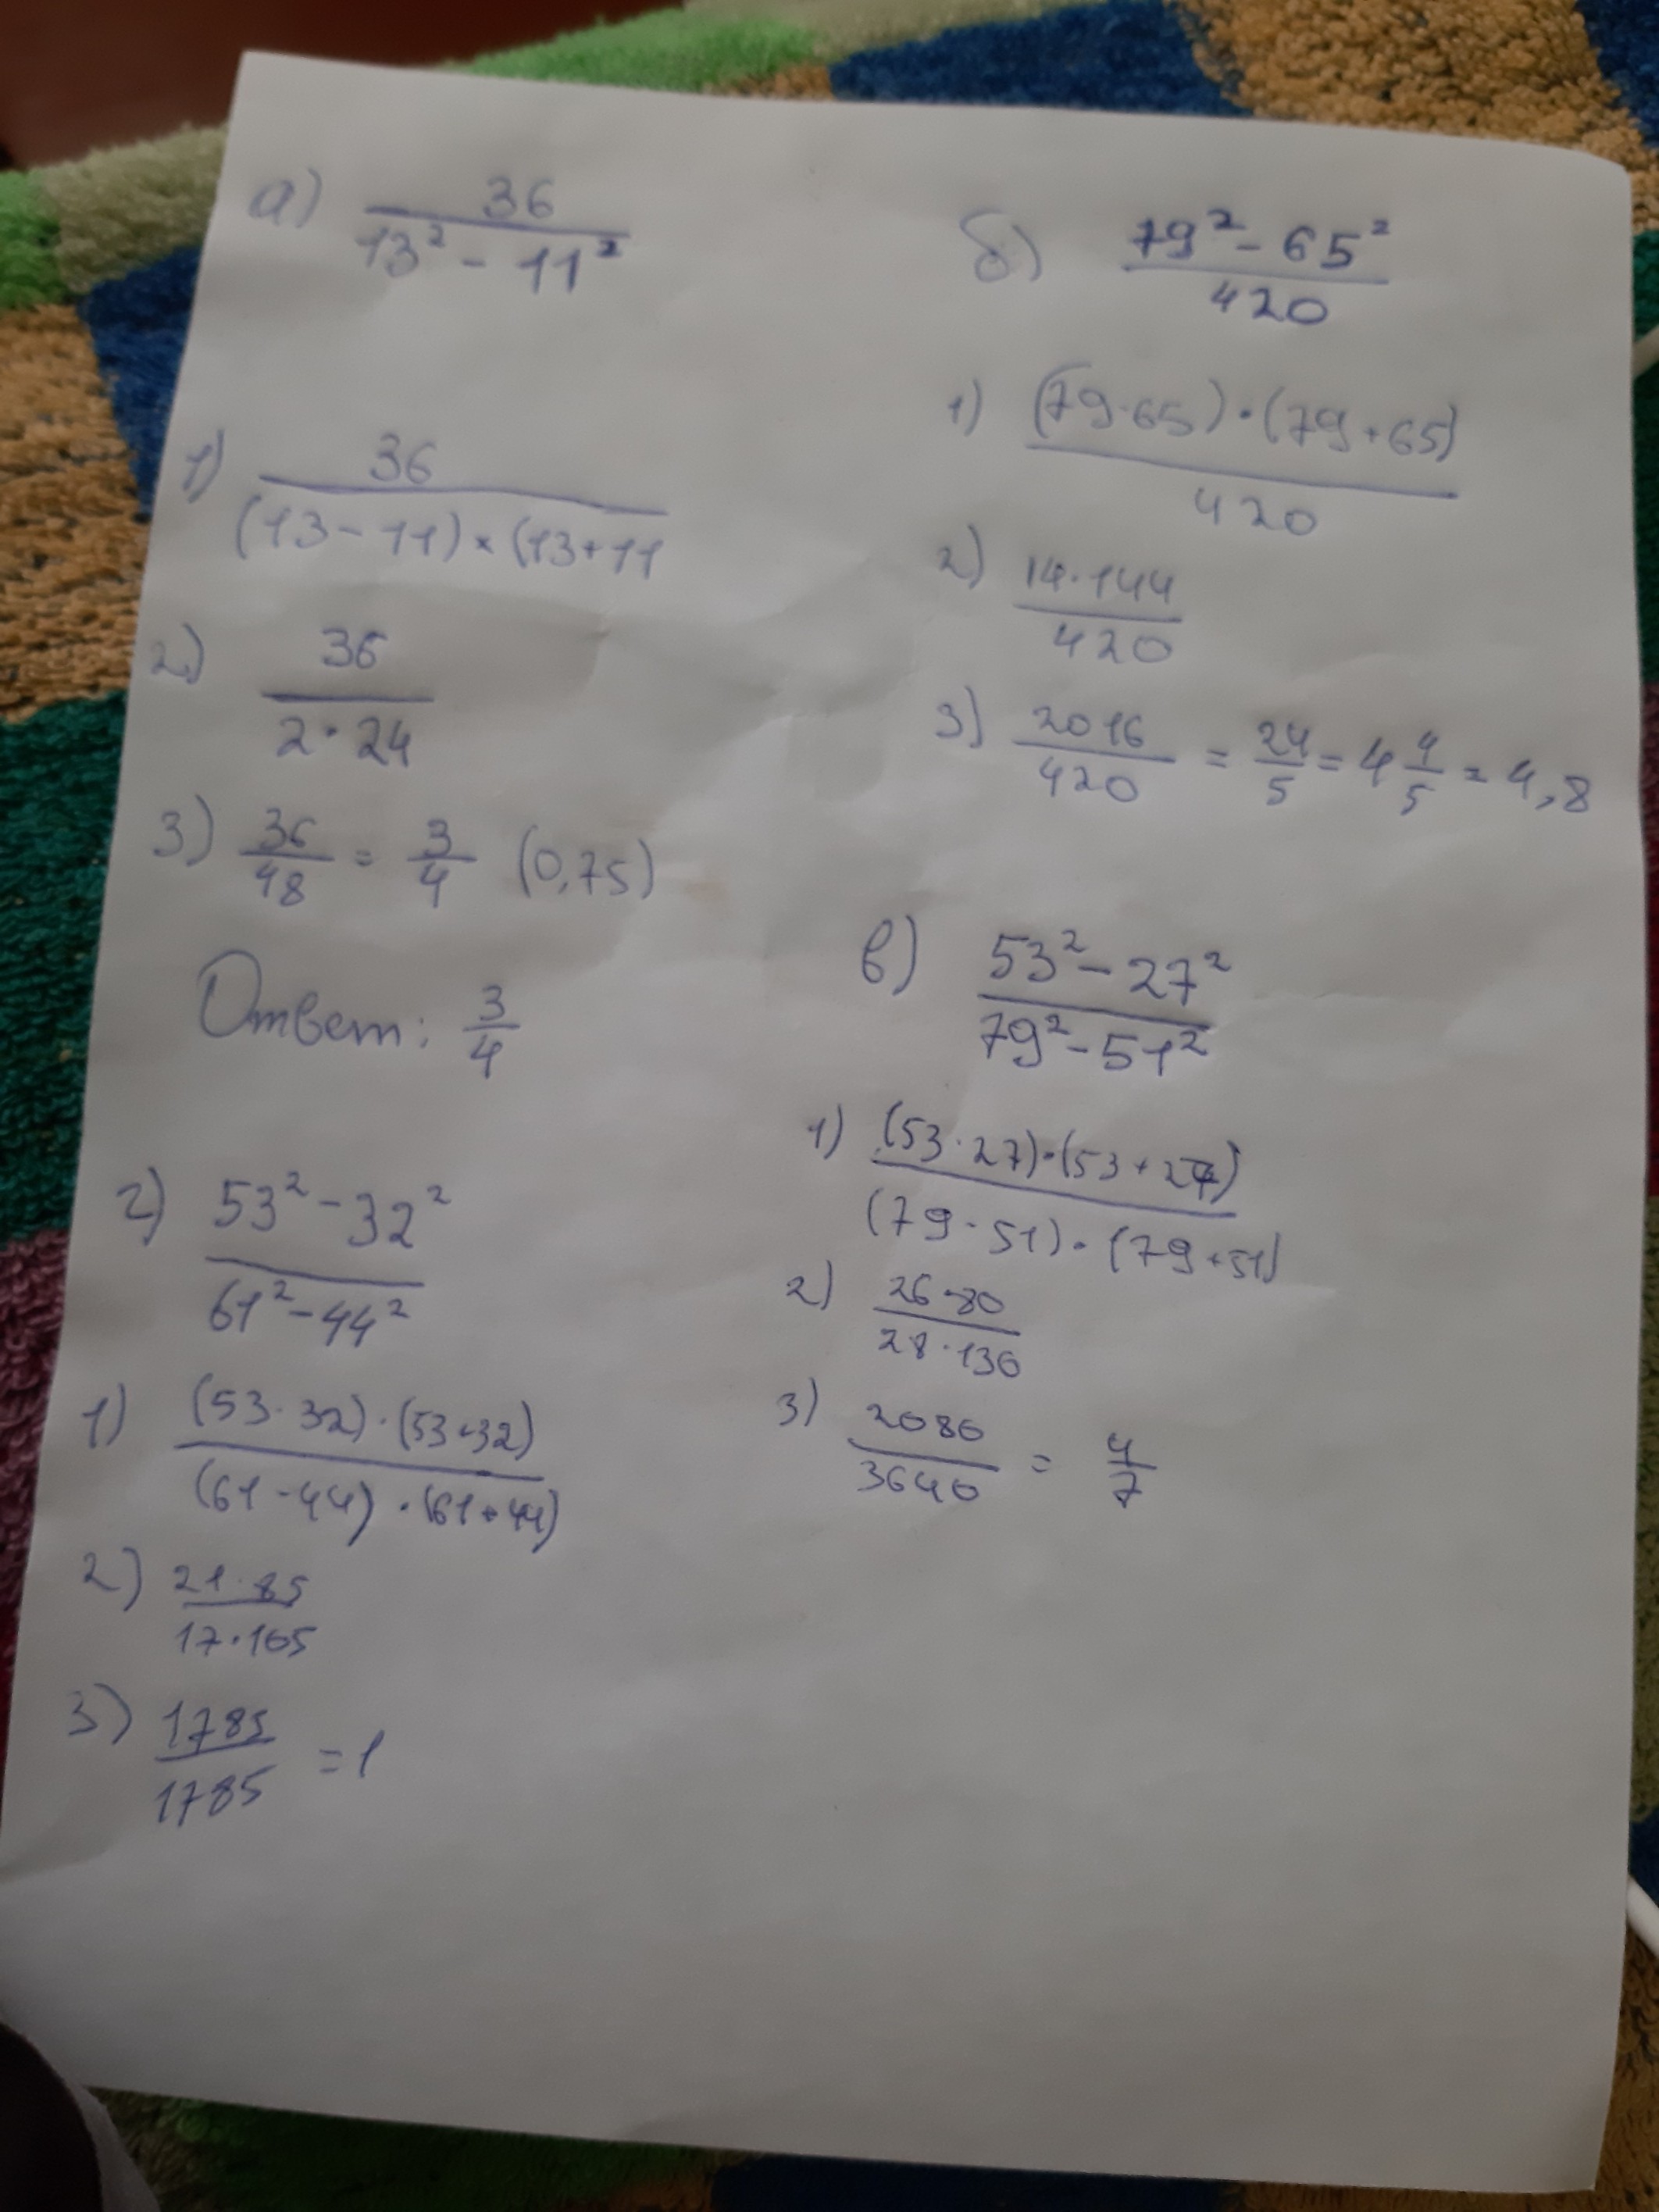 а) 36
13² - 11²
1) 36
(13 - 11) × (13 + 11
2) 36
2 · 24
3) 36/48 = 3/4 (0,75)
Ответ: 3/4
б) 79² - 65²
420
1) (79 - 65) · (79 + 65)
420
2) 14 · 144
420
3) 2016/420 = 24/5 = 4 4/5 = 4,8
в) 53² - 27²
79² - 51²
1) (53 - 27) · (53 + 27)
(79 - 51) · (79 + 51)
2) 26 · 80
28 · 130
3) 2080/3640 = 4/7
г) 53² - 32²
61² - 44²
1) (53 - 32) · (53 + 32)
(61 - 44) · (61 + 44)
2) 21 · 85
17 · 105
3) 1785/1785 = 1